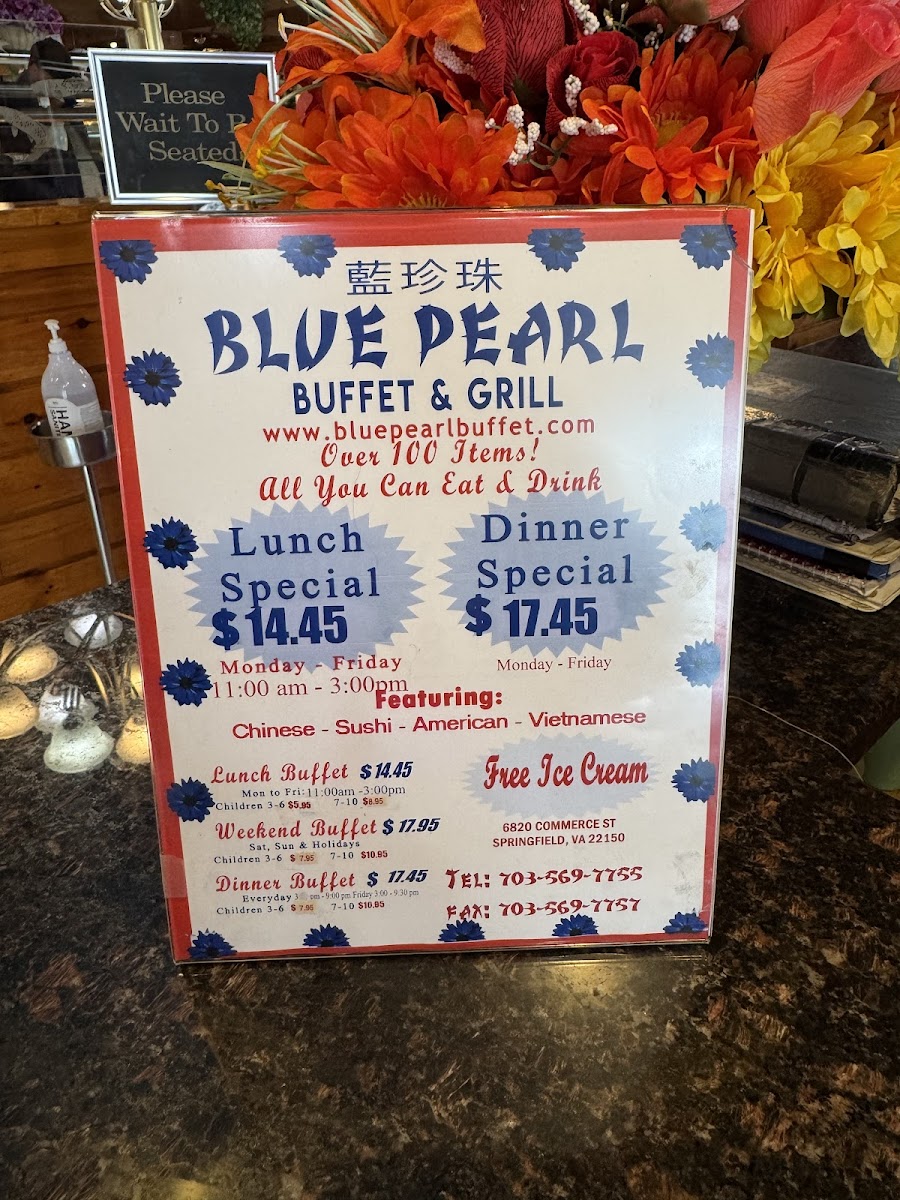 Please
Wait To
Seated
藍珍珠
BLUE PEARL
BUFFET & GRILL
www.bluepearlbuffet.com
Over 100 Items!
All You Can Eat & Drink
Lunch
Special
$14.45
Monday - Friday
11:00 am - 3:00pm
Dinner
Special
$ 17.45
Monday - Friday
Featuring:
Chinese - Sushi - American - Vietnamese
Lunch Buffet $14.45
Mon to Fri: 11:00am -3:00pm
Children 3-6 $5.95 7-10 $8.95
Weekend Buffet $17.95
Sat, Sun & Holidays
Children 3-6 $ 7.95 7-10 $10.95
Dinner Buffet $ 17.45
Everyday 3 pm - 9:00 pm Friday 3:00 - 9:30 pm
Children 3-6 $ 7.95 7-10 $10.95
Free Ice Cream
6820 COMMERCE ST
SPRINGFIELD, VA 22150
TEL: 703-569-7755
FAX: 703-569-7757